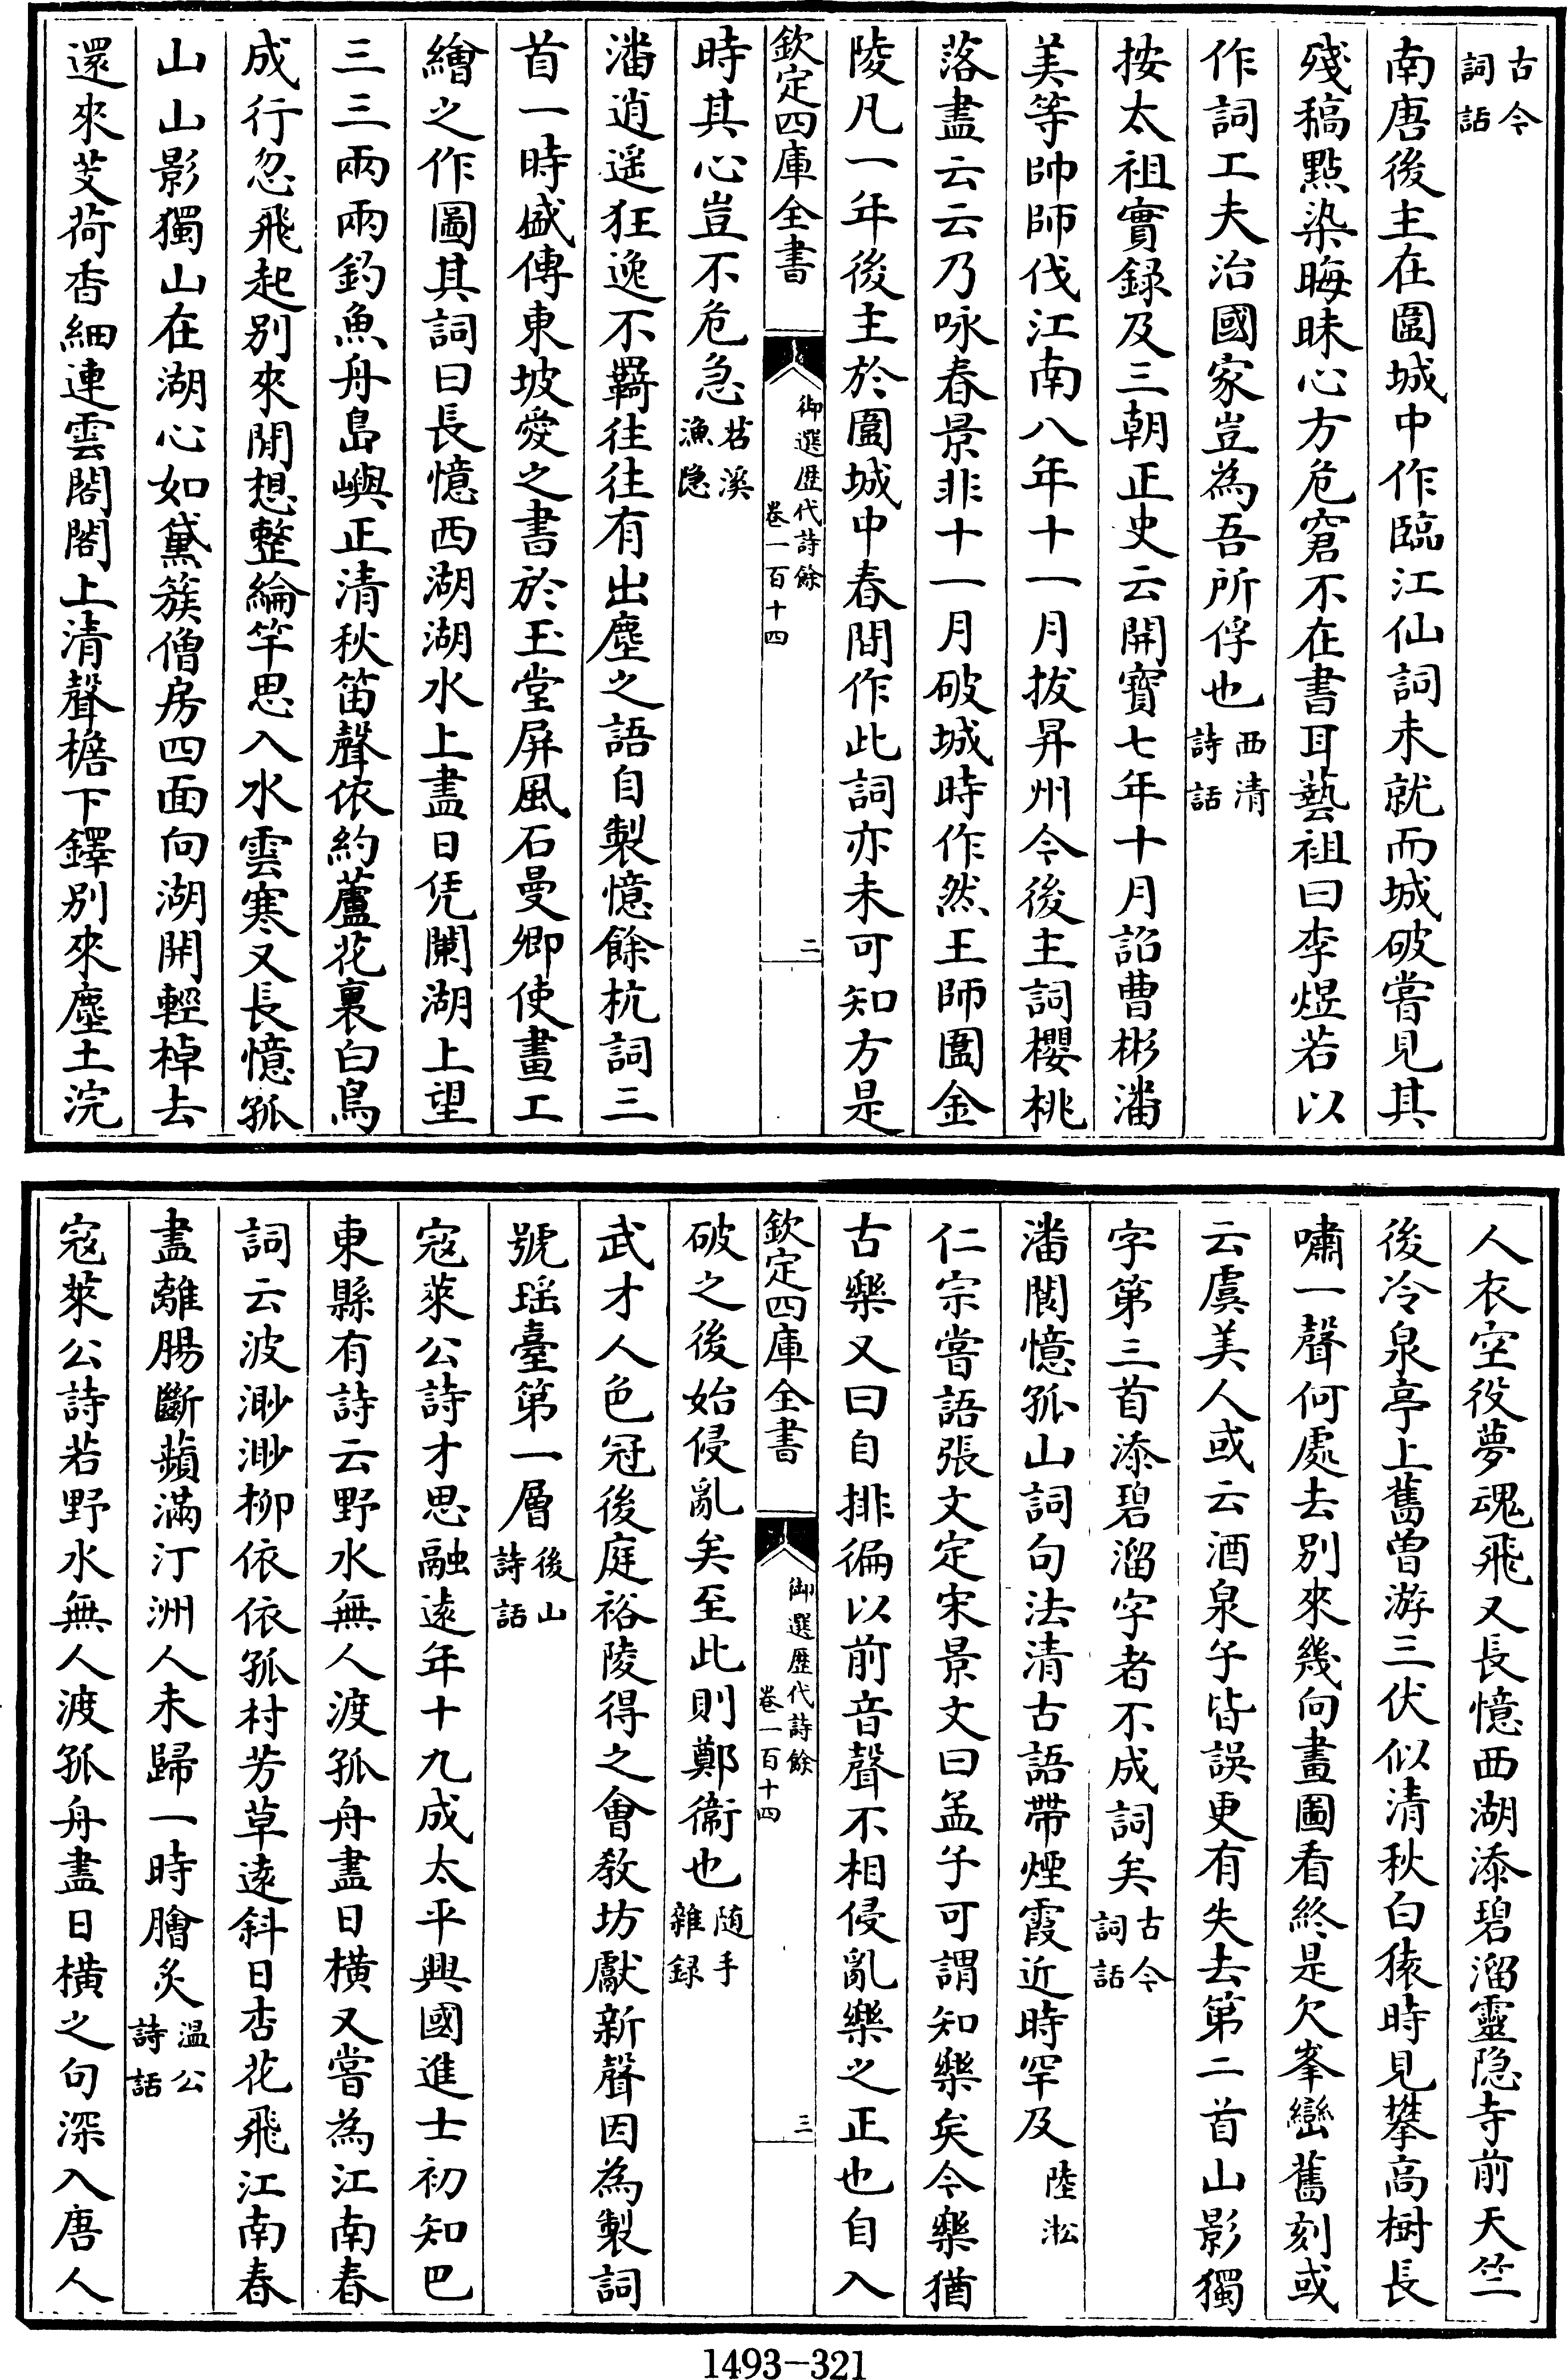 古今詞話
南唐後主在圍城中作臨江仙詞未就而城破嘗見其
殘稿點染晦昧心方危窘不在書耳藝祖曰李煜若以
作詞工夫治國家豈為吾所俘也西清詩話
按太祖實録及三朝正史云開寶七年十月詔曹彬潘
美等帥師伐江南八年十一月拔昇州今後主詞櫻桃
落盡云云乃咏春景非十一月破城時作然王師圍金
陵凡一年後主於圍城中春間作此詞亦未可知方是
欽定四庫全書
御選歷代詩餘
卷一百十四
二
時其心豈不危急苕溪漁隱
潘逍遥狂逸不羈往往有出塵之語自製憶餘杭詞三
首一時盛傳東坡愛之書於玉堂屏風石曼卿使畫工
繪之作圖其詞曰長憶西湖湖水上盡日凭闌湖上望
三三兩兩釣魚舟島嶼正清秋笛聲依約蘆花裏白鳥
成行忽飛起别來閒想整綸竿思入水雲寒又長憶孤
山山影獨山在湖心如黛簇僧房四面向湖開輕棹去
還來芰荷香細連雲閣閣上清聲檐下鐸别來塵土浣
人衣空役夢魂飛又長憶西湖添碧溜靈隐寺前天竺
後冷泉亭上舊曾游三伏似清秋白猿時見攀高樹長
嘯一聲何處去别來幾向畫圖看終是欠峯巒舊刻或
云虞美人或云酒泉子皆誤更有失去第二首山影獨
字第三首添碧溜字者不成詞矣古今詞話
潘閬憶孤山詞句法清古語帶煙霞近時罕及陸淞
仁宗嘗語張文定宋景文曰孟子可謂知樂矣今樂猶
古樂又曰自排徧以前音聲不相侵亂樂之正也自入
欽定四庫全書
御選歷代詩餘
卷一百十四
三
破之後始侵亂矣至此則鄭衞也随手雜録
武才人色冠後庭裕陵得之會教坊獻新聲因為製詞
號瑶臺第一層後山詩話
寇萊公詩才思融遠年十九成太平興國進士初知巴
東縣有詩云野水無人渡孤舟盡日横又嘗為江南春
詞云波渺渺柳依依孤村芳草遠斜日杏花飛江南春
盡離腸斷蘋滿汀洲人未歸一時膾炙温公詩話
寇萊公詩若野水無人渡孤舟盡日横之句深入唐人
1493-321